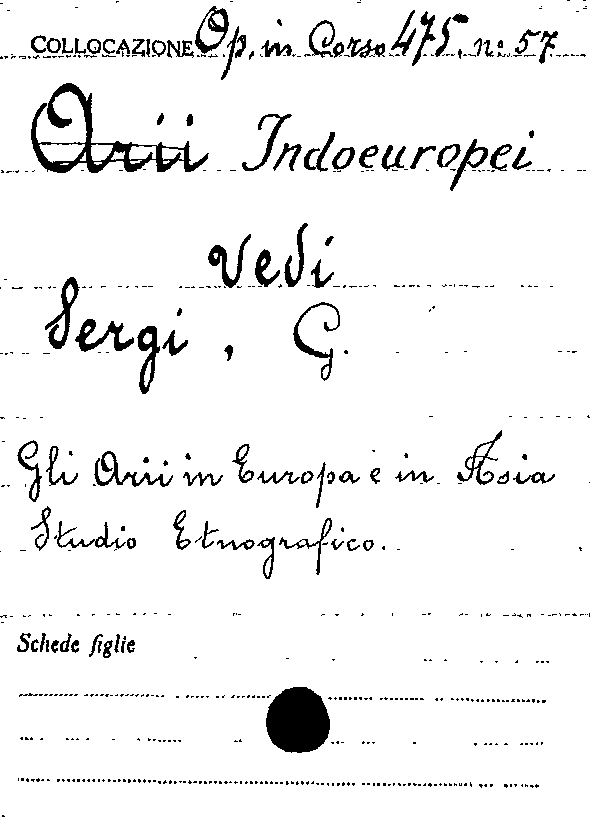 COLLOCAZIONE Op. in Corso 475. nº 57
Arii Indoeuropei
Vedi
Sergi, G.
Gli Arii in Europa e in Asia
Studio Etnografico.
Schede figlie